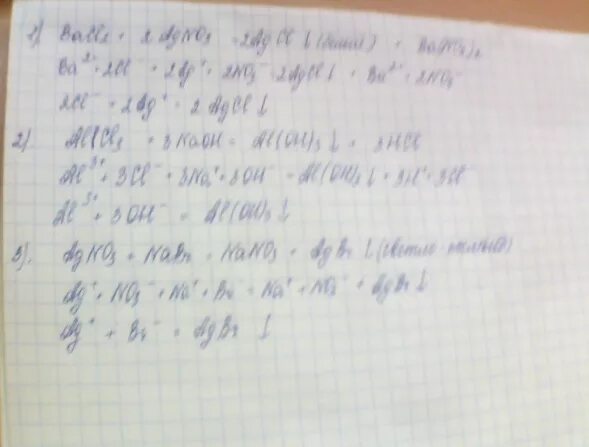 1) BaCl₂ + 2AgNO₃ = 2AgCl↓ (белый) + Ba(NO₃)₂
Ba²⁺ + 2Cl⁻ + 2Ag⁺ + 2NO₃⁻ = 2AgCl↓ + Ba²⁺ + 2NO₃⁻
2Cl⁻ + 2Ag⁺ = 2AgCl↓
2) AlCl₃ + 3NaOH = Al(OH)₃↓ + 3HCl
Al³⁺ + 3Cl⁻ + 3Na⁺ + 3OH⁻ = Al(OH)₃↓ + 3H⁺ + 3Cl⁻
Al³⁺ + 3OH⁻ = Al(OH)₃↓
3). AgNO₃ + NaBr = NaNO₃ + AgBr↓ (светло-жёлтый)
Ag⁺ + NO₃⁻ + Na⁺ + Br⁻ = Na⁺ + NO₃⁻ + AgBr↓
Ag⁺ + Br⁻ = AgBr↓